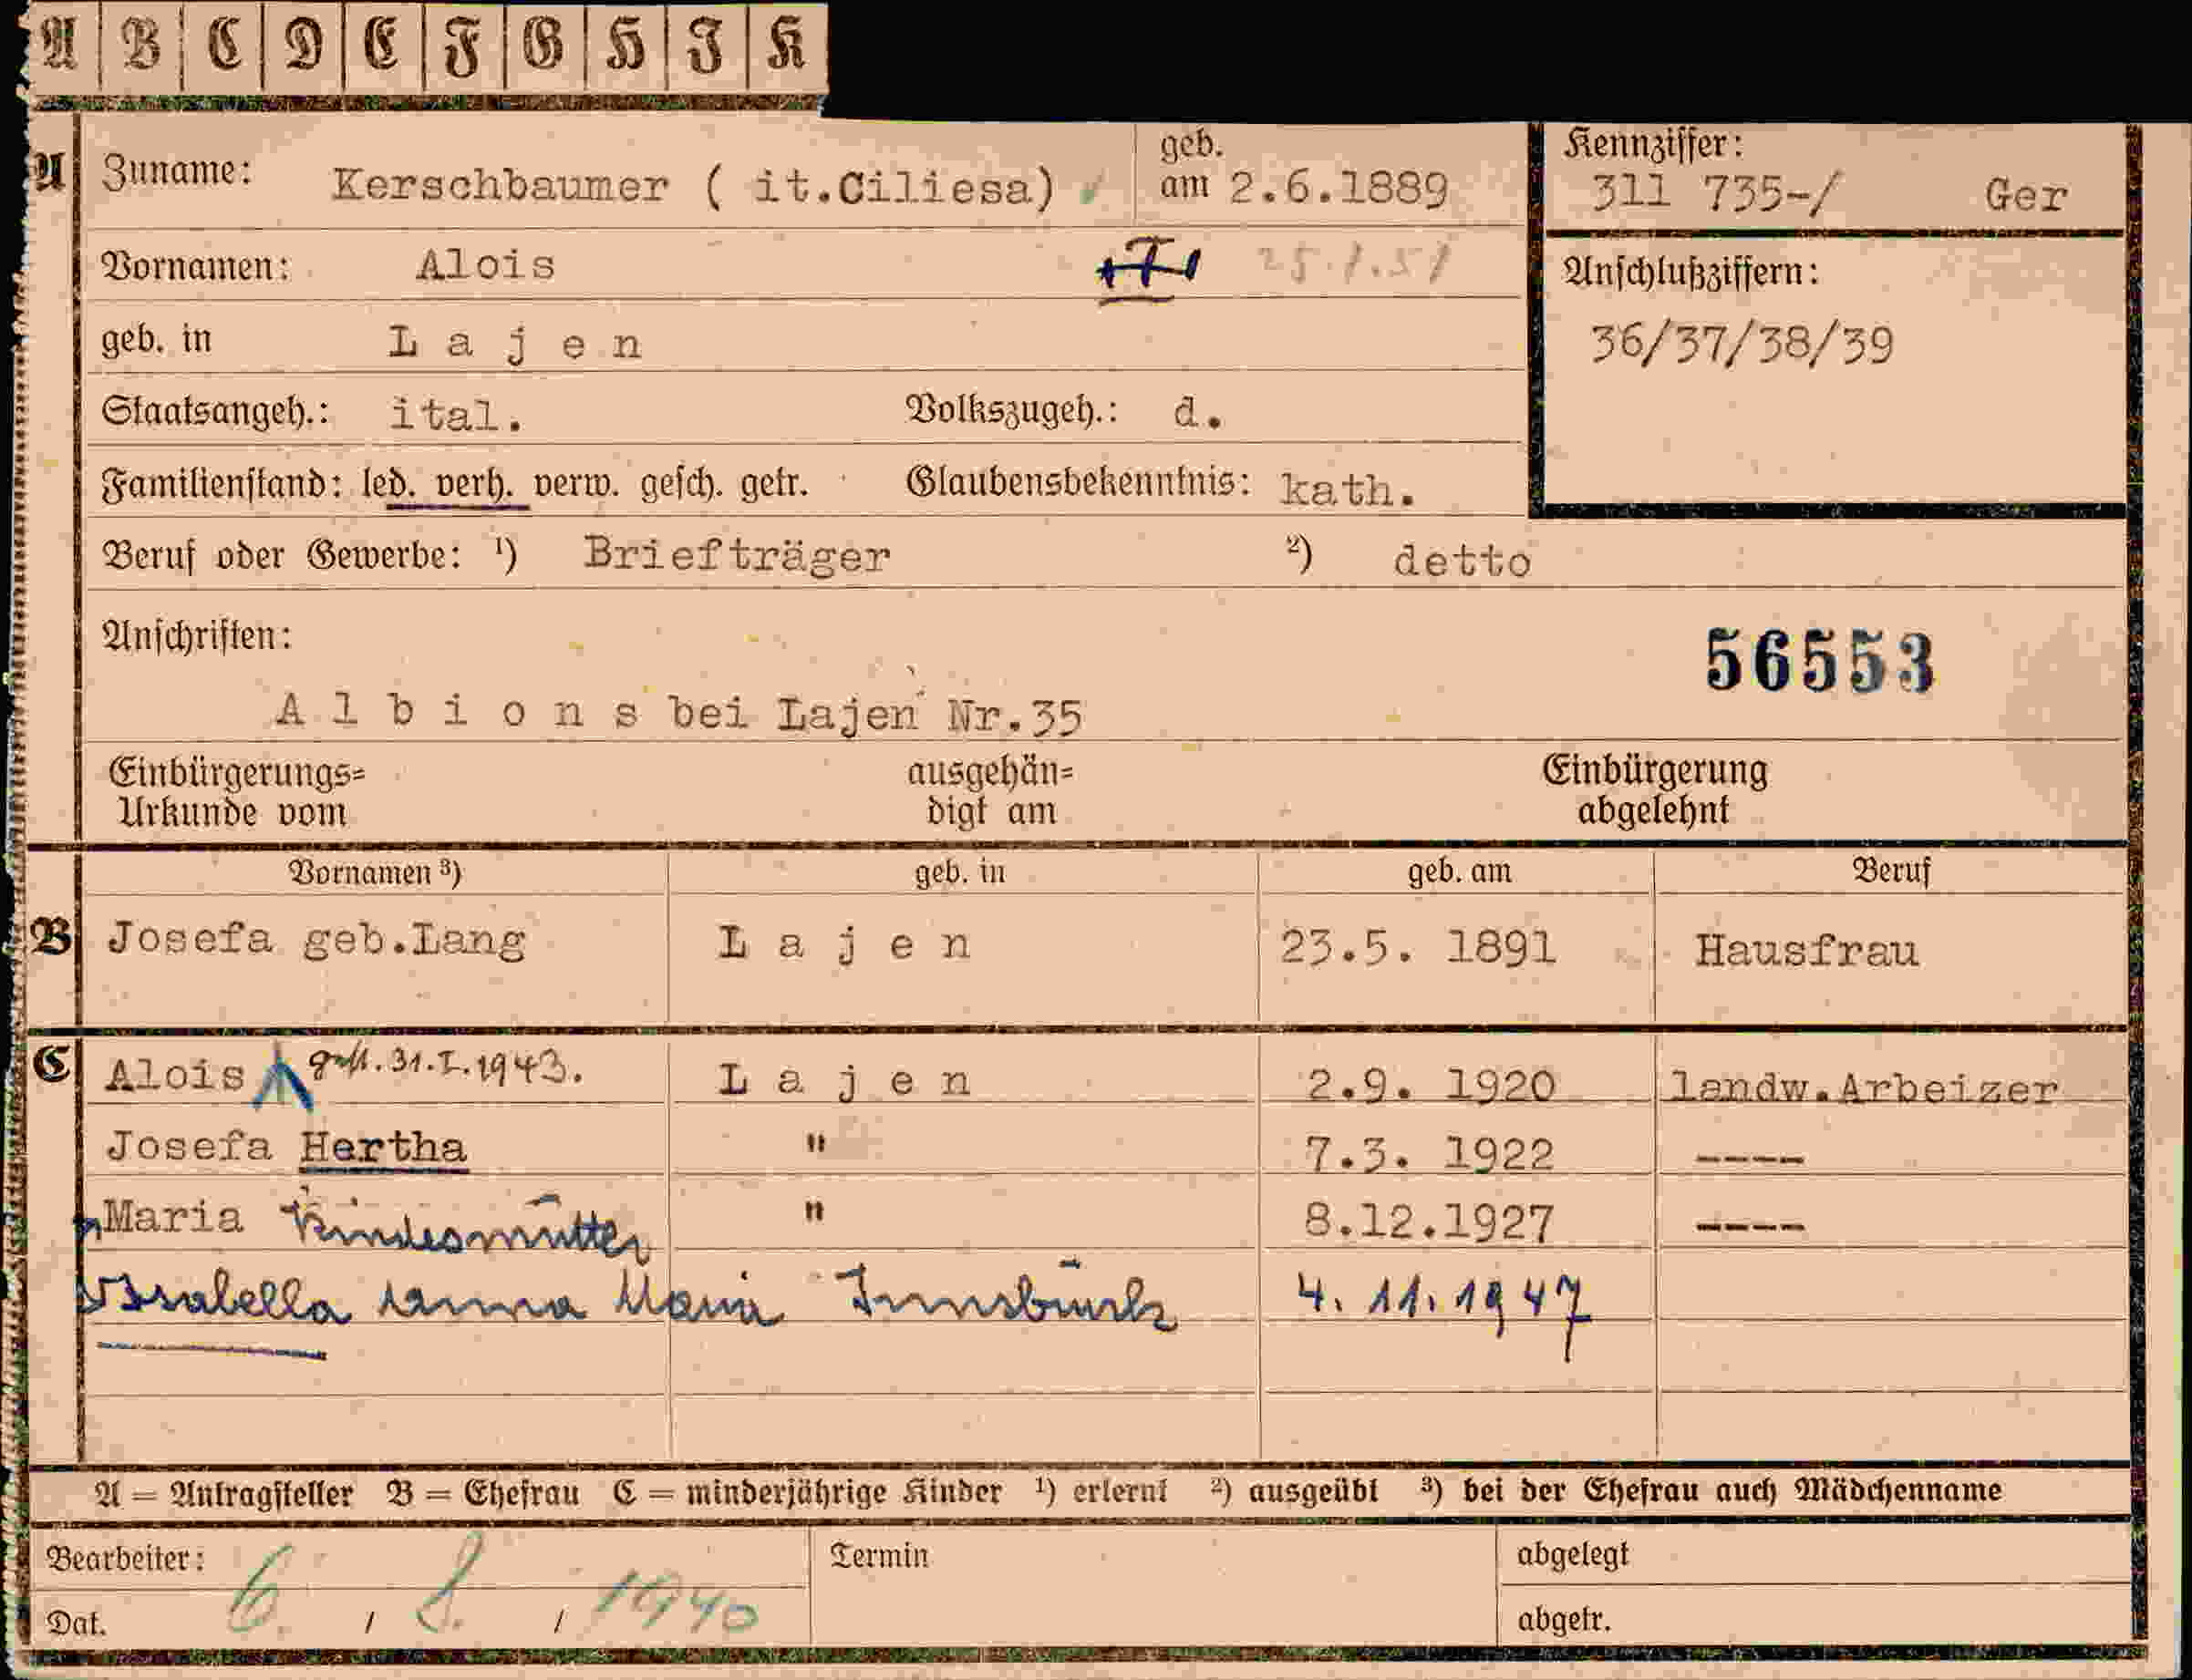 A B C D E F G H I K
A Zuname: Kerschbaumer ( it.Ciliesa) geb. am 2.6.1889 Kennziffer: 311 735-/ Ger
Vornamen: Alois 25.1.51 Anschlußziffern:
geb. in Lajen 36/37/38/39
Staatsangeh.: ital. Volkszugeh.: d.
Familienstand: led. verh. verw. gesch. getr. Glaubensbekenntnis: kath.
Beruf oder Gewerbe: ¹) Briefträger ²) detto
Anschriften: 56553
Albions bei Lajen Nr.35
Einbürgerungs= ausgehän= Einbürgerung
Urkunde vom digt am abgelehnt
Vornamen ³) geb. in geb. am Beruf
B Josefa geb.Lang Lajen 23.5. 1891 Hausfrau
C Alois gefl. 31.I.1943. Lajen 2.9. 1920 landw.Arbeizer
Josefa Hertha " 7.3. 1922 ----
Maria Kindesmutter " 8.12.1927 ----
Isabella Anna Maria Innsbruck 4.11.1947
A = Antragsteller B = Ehefrau C = minderjährige Kinder ¹) erlernt ²) ausgeübt ³) bei der Ehefrau auch Mädchenname
Bearbeiter: Termin abgelegt
Dat. 6. / 8. / 1940 abgetr.